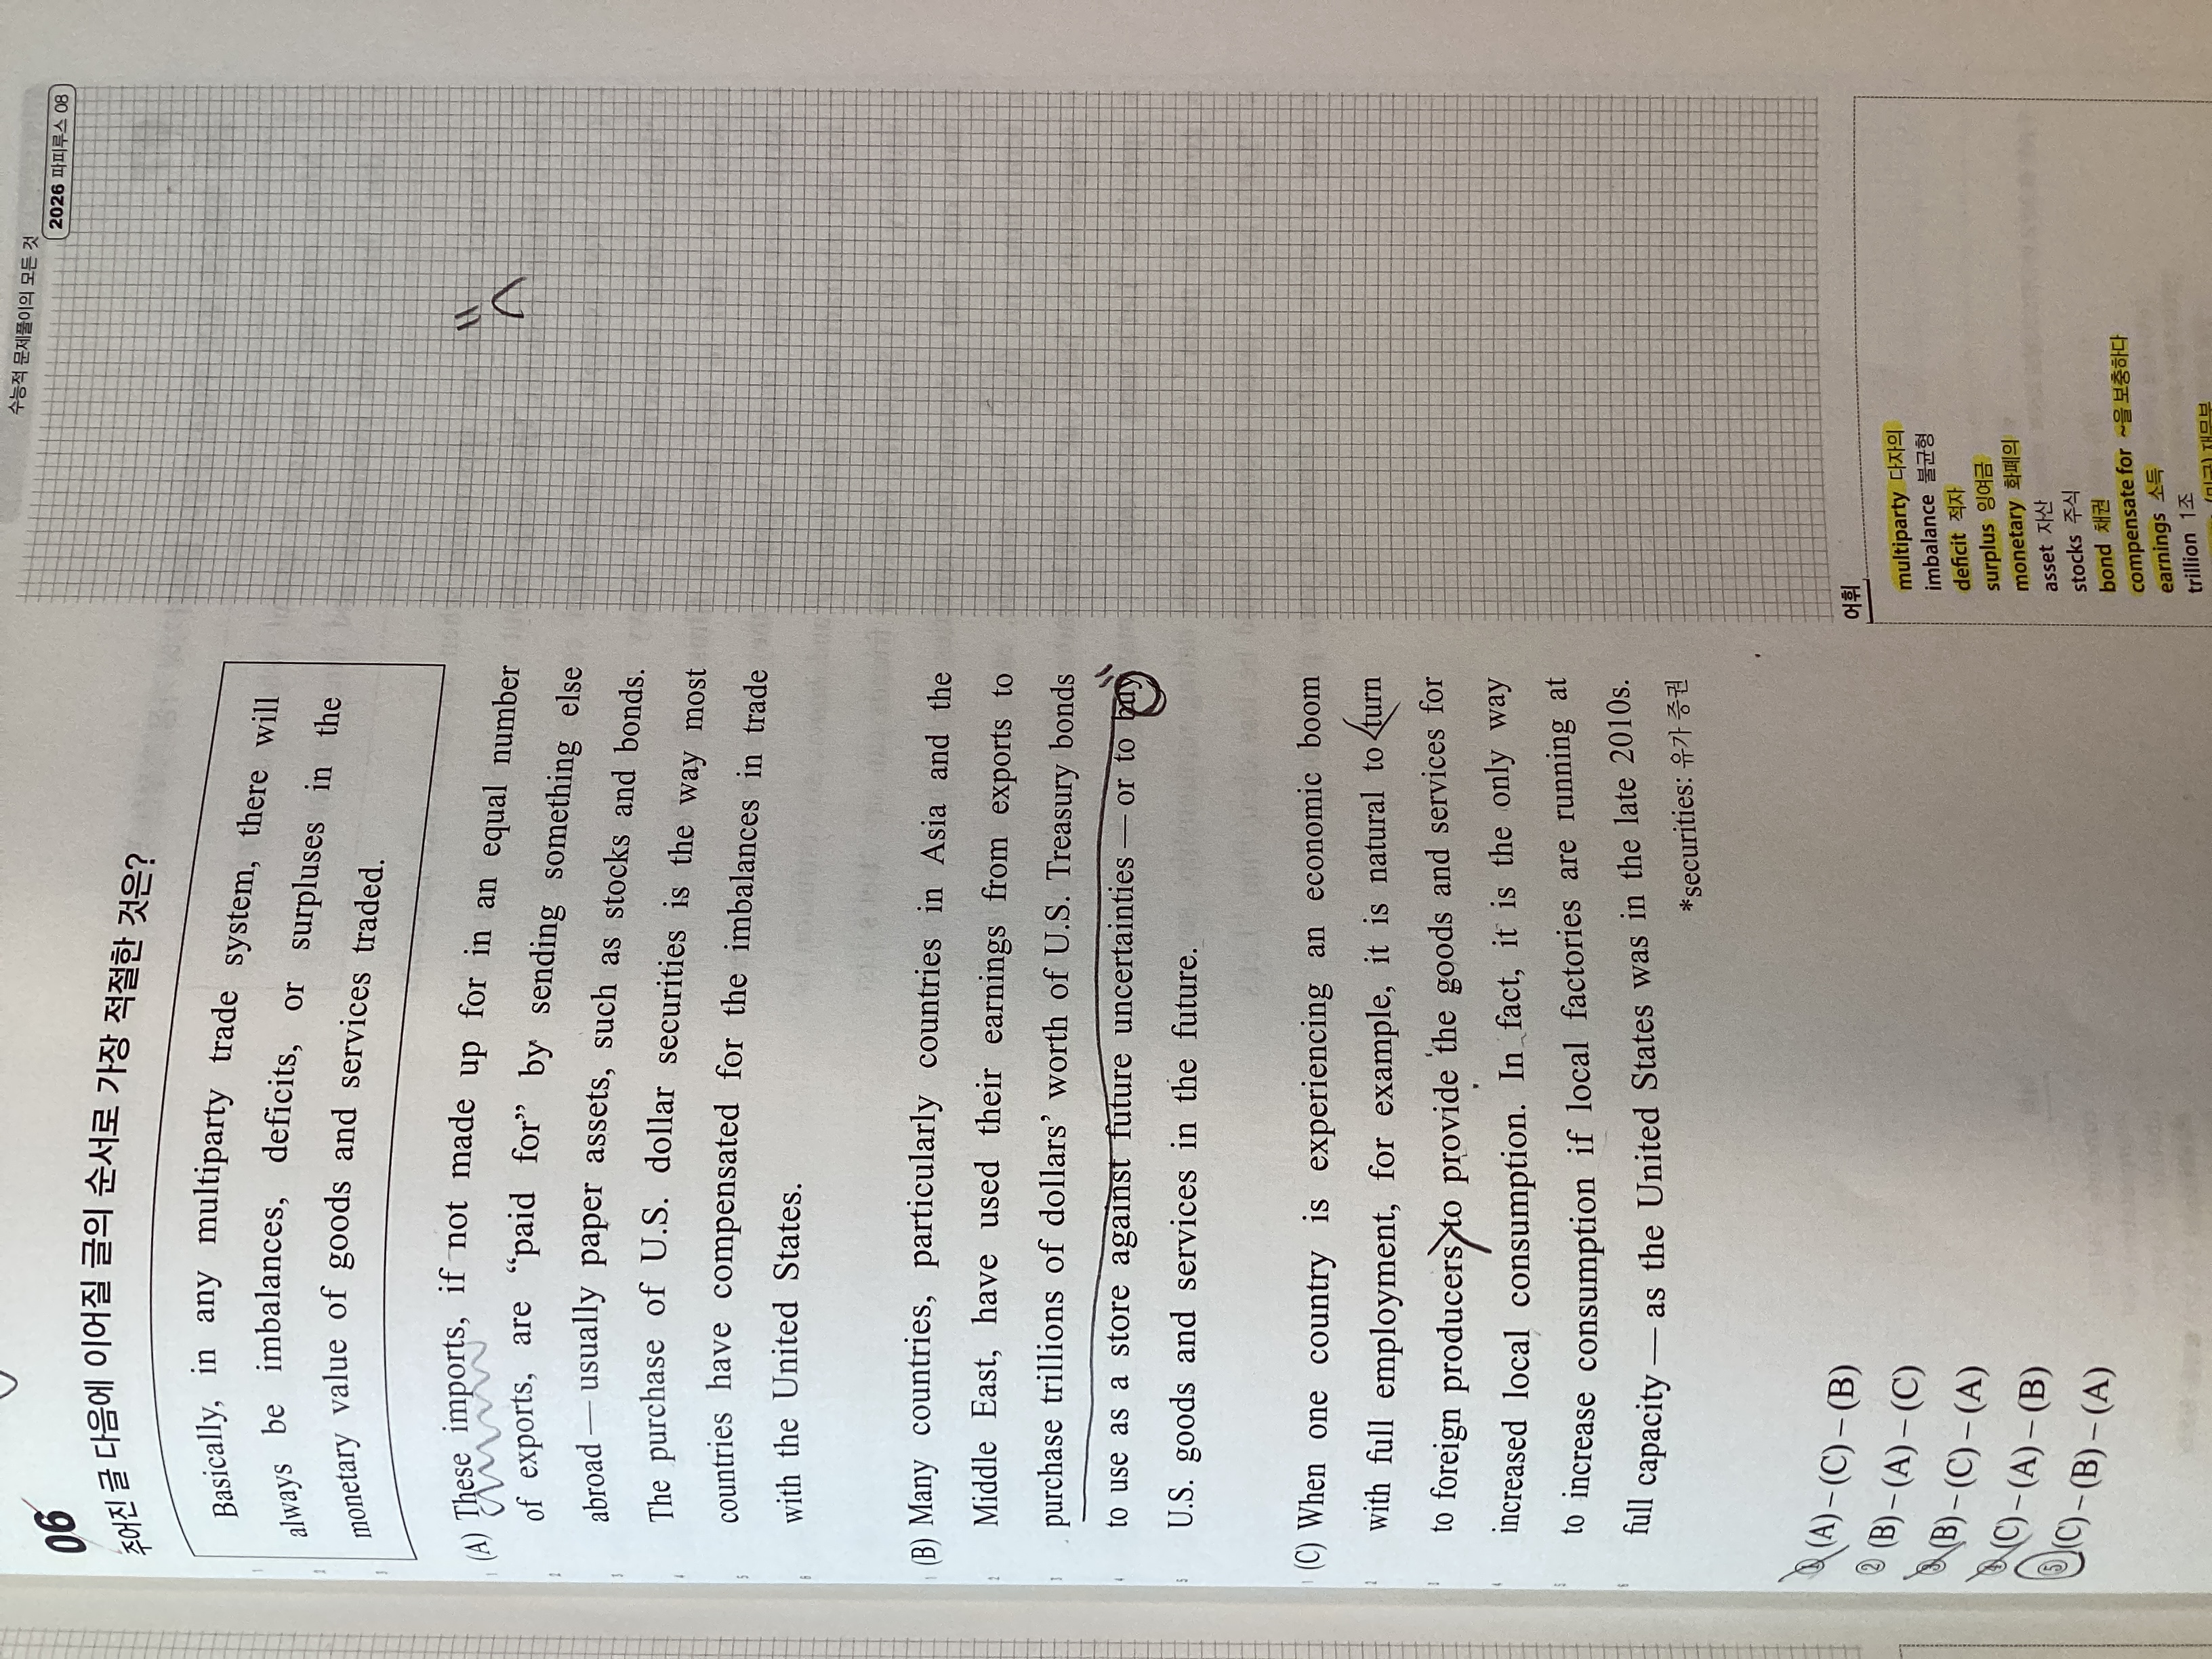 수능적 문제풀이의 모든 것
2026 파피루스 08
06
주어진 글 다음에 이어질 글의 순서로 가장 적절한 것은?
Basically, in any multiparty trade system, there will
always be imbalances, deficits, or surpluses in the
monetary value of goods and services traded.
(A) These imports, if not made up for in an equal number
of exports, are “paid for” by sending something else
abroad — usually paper assets, such as stocks and bonds.
The purchase of U.S. dollar securities is the way most
countries have compensated for the imbalances in trade
with the United States.
(B) Many countries, particularly countries in Asia and the
Middle East, have used their earnings from exports to
purchase trillions of dollars’ worth of U.S. Treasury bonds
to use as a store against future uncertainties — or to buy
U.S. goods and services in the future.
(C) When one country is experiencing an economic boom
with full employment, for example, it is natural to turn
to foreign producers to provide the goods and services for
increased local consumption. In fact, it is the only way
to increase consumption if local factories are running at
full capacity — as the United States was in the late 2010s.
*securities: 유가 증권
① (A) – (C) – (B)
② (B) – (A) – (C)
③ (B) – (C) – (A)
④ (C) – (A) – (B)
⑤ (C) – (B) – (A)
어휘
multiparty 다자의
imbalance 불균형
deficit 적자
surplus 잉여금
monetary 화폐의
asset 자산
stocks 주식
bond 채권
compensate for ~을 보충하다
earnings 소득
trillion 1조